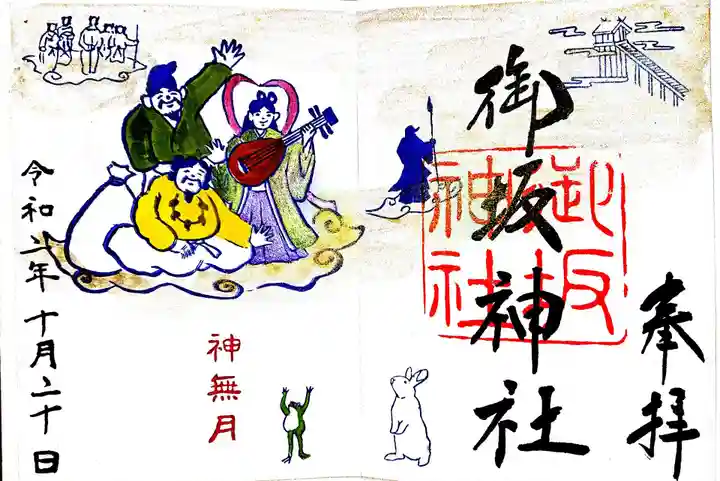 奉拝
御坂神社
御坂
神社
神無月
令和 年十月二十日